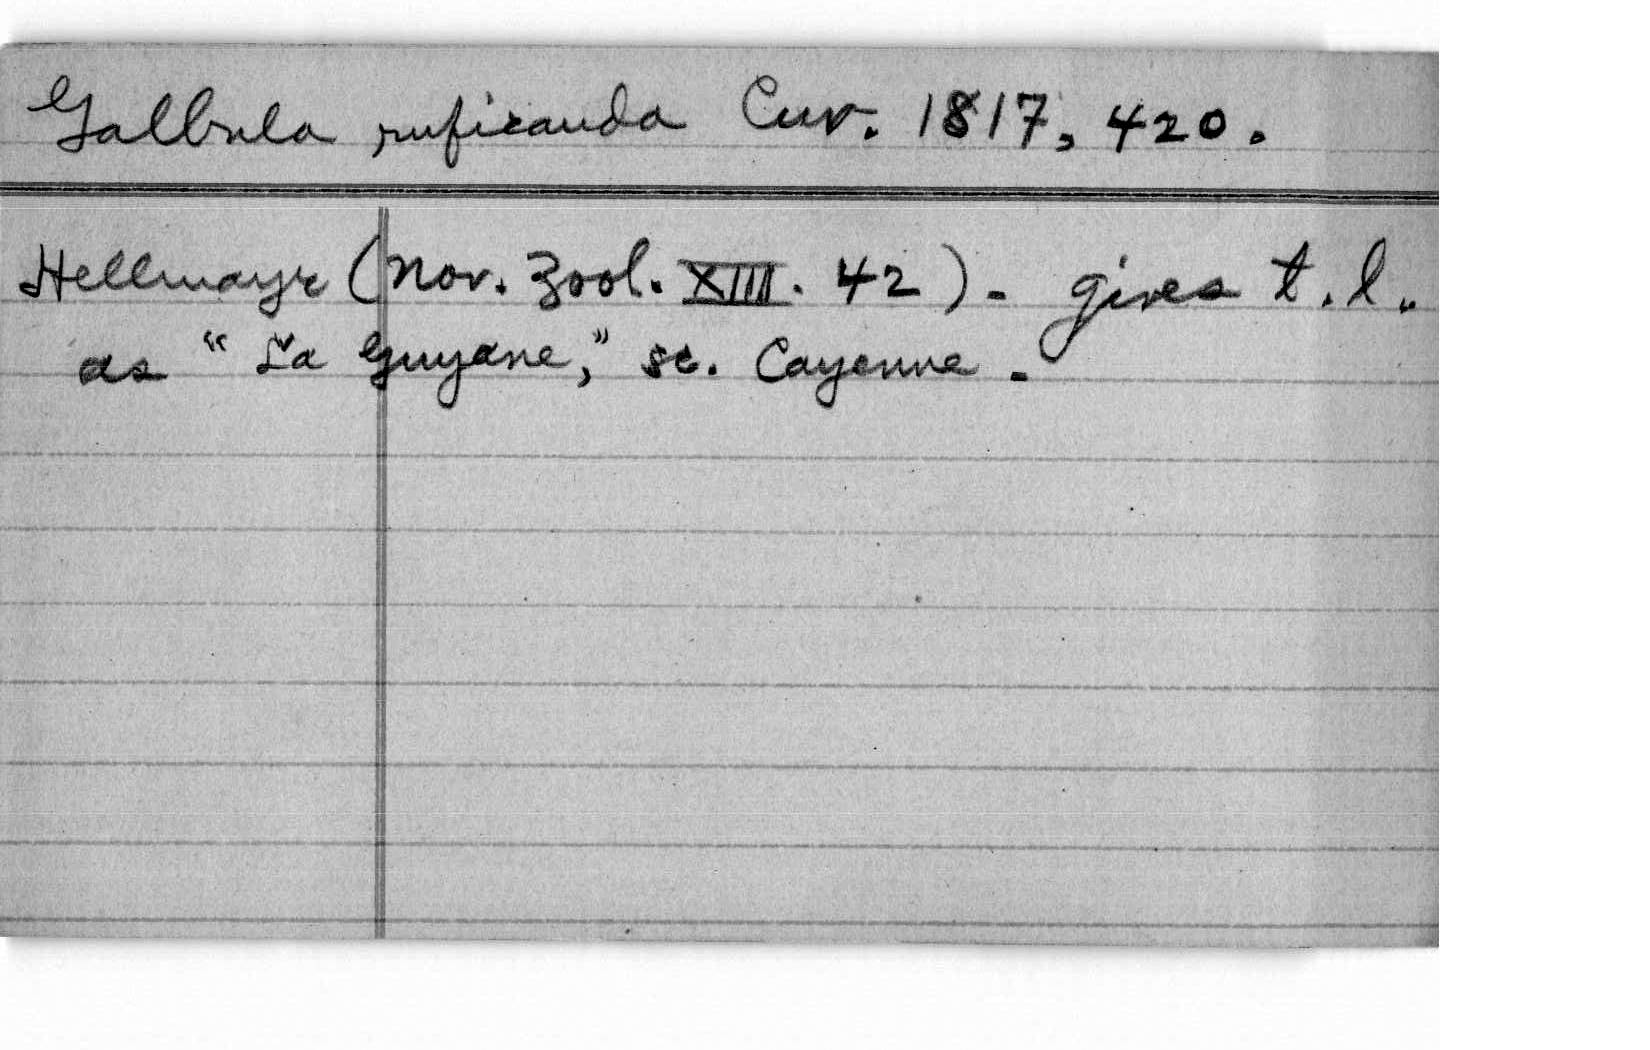 Galbula ruficauda Cuv. 1817, 420.
Hellmayr (Nov. Zool. XIII. 42). gives t.l.
as "La Guyane," sc. Cayenne.